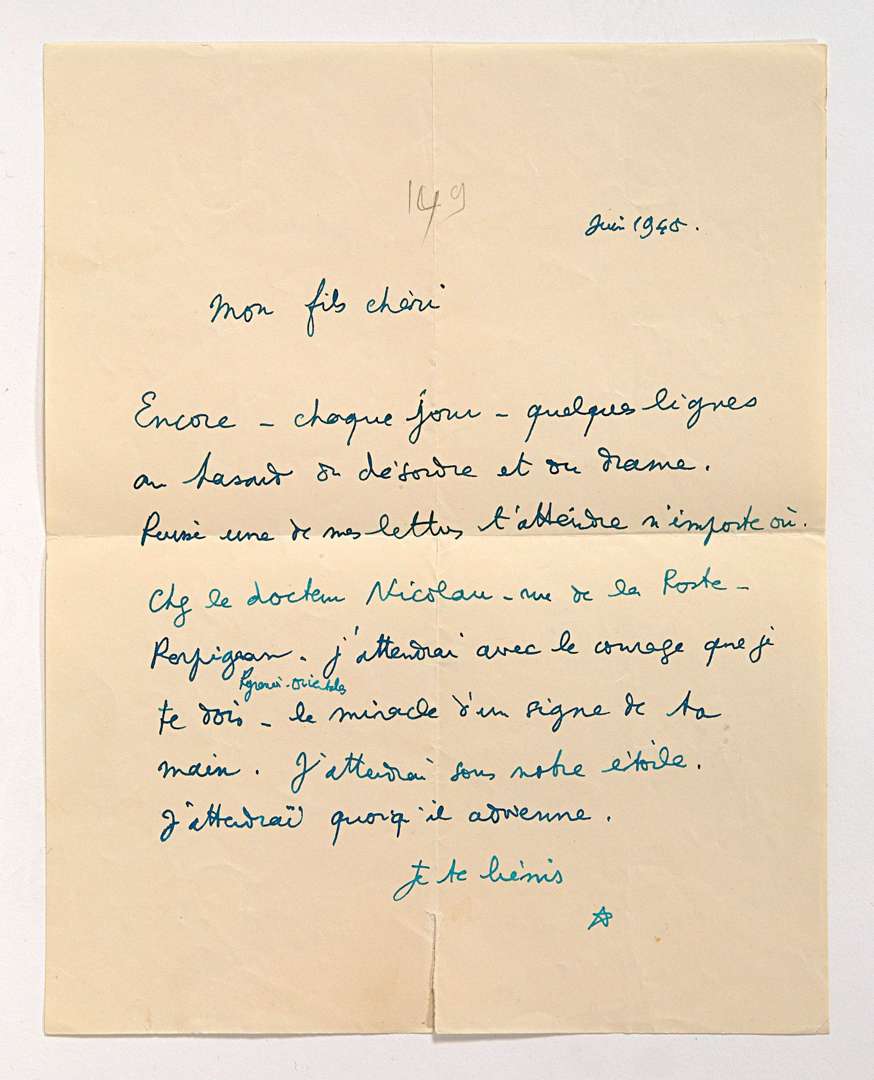 149
Juin 1940.
Mon fils chéri
Encore - chaque jour - quelques lignes
au hasard du désordre et du drame.
Puisse une de mes lettres t'atteindre n'importe où.
Chez le docteur Nicolau - rue de la Poste -
Perpignan. J'attendrai avec le courage que je
Pyrénées-Orientales
te dois - le miracle d'un signe de ta
main. J'attendrai sous notre étoile.
J'attendrai quoiqu'il advienne.
Je te bénis